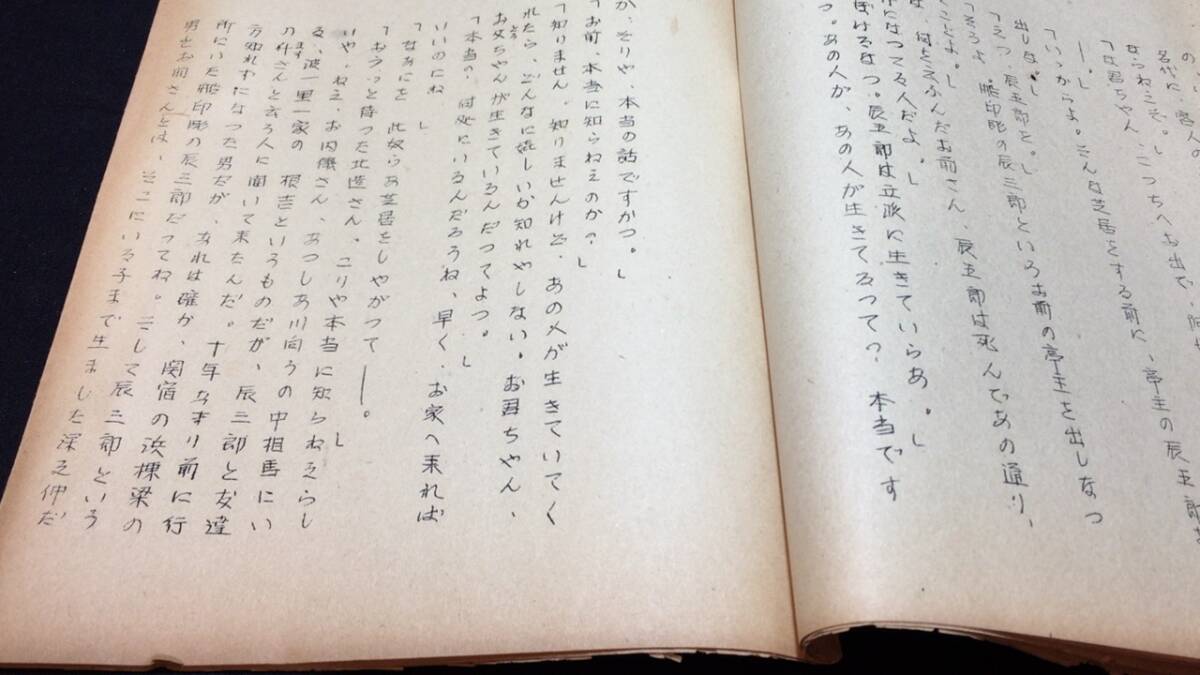 名代に、
ならねえぞ。」こつちへお出で、
「お君ちやん、
――。」
「いゝからよ。そんな芝居をする前に、亭主の辰三郎を
出しな。」
「えつ、辰三郎を。」
「そうよ。船印彫の辰三郎というお前の亭主を出しなつ
ことよ。」
何を云ふんだお前さん、辰三郎は死んであの通り、
になつてる人だよ。」
ぼけるなつ。辰三郎は立派に生きていらあ。」
つ。あの人が、あの人が生きてるつて?　本当です
か、そりや、本当の話ですかつ。」
「お前、本当に知らねえのか?」
「知りません。知りませんけど、あの人が生きていてく
れたら、どんなに嬉しいか知れやしない。お君ちやん、
お父ちやんが生きているんだつてよつ。」
「本当の、何処にいるんだろうね、早く、お家へ来れば
いいのにね」
「なあにを　此奴らあ芝居をしやがつて――。」
「おうつと待つた北造さん、こりや本当に知らねえらし
いや、ねえ、お内儀さん、あつしあ川向うの中相馬にい
る、波一里一家の　根吉というものだが、辰三郎と友達
の件さんと云う人に聞いて来たんだ。十年あまり前に行
方知れずになつた男だが、あれは確か、関宿の浜棟梁の
所にいた船印彫の辰三郎だつてね。そして辰三郎という
男とお前さんとは、そこにいる子まで生ました深え仲だ